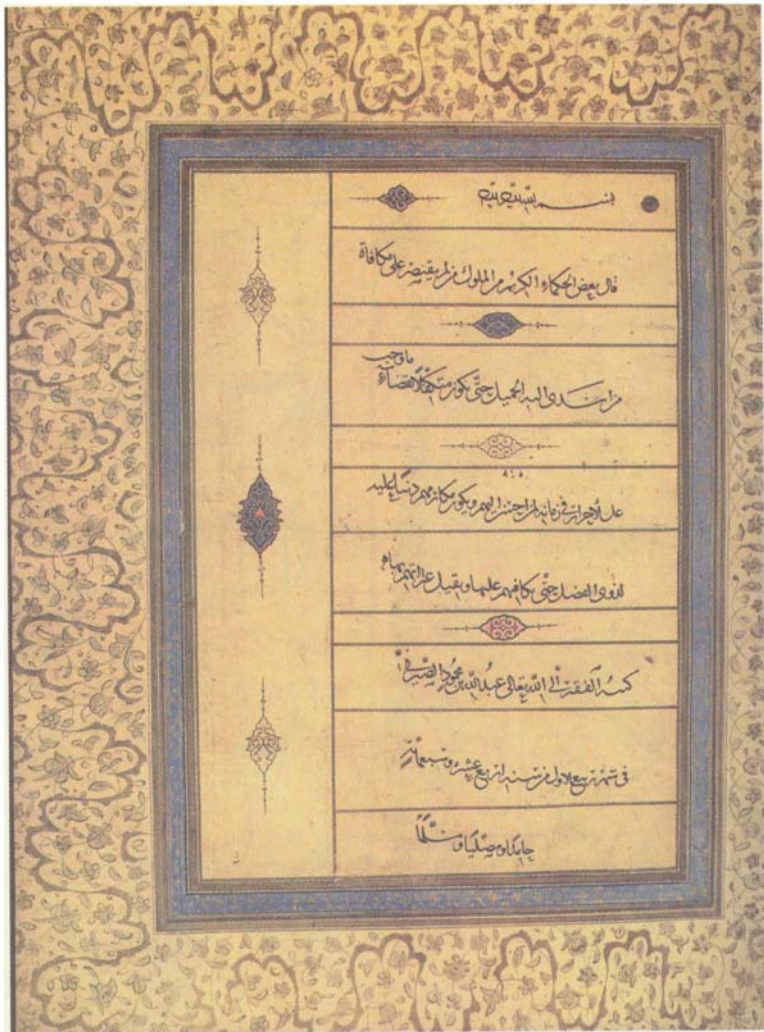 قال بعض الحكماء الكريم من الملوك من لم يقتصر على مكافاة
من اسدى اليه الجميل حتى يكون متكفلا بقضاء ما وجب
على الاحرار في زمانه لمن احسن اليهم ويكون مكانه منهم دينا عليه
لذوي الفضل حتى يكافيهم عليها ويقيل عثراتهم
كتبه الفقير الى الله تعالى عبد الله بن محمود الصيرفي
في شهر ربيع الاول من سنة اربع عشره وسبعمائة
حامدا ومصليا ومسلما